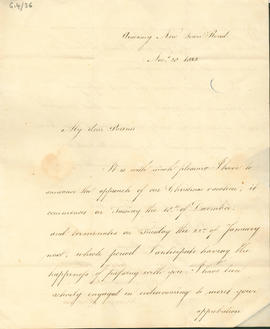 6.4/36
New Town Road
Nov. 20 18
My dear Parents
It is with much pleasure I have to
announce the approach of our Christmas vacation; it
commences on Tuesday the 10th of December
and terminates on Tuesday the 21st of January
next, which period I anticipate having the
happiness of passing with you; I have been
actively engaged in endeavouring to merit your
approbation